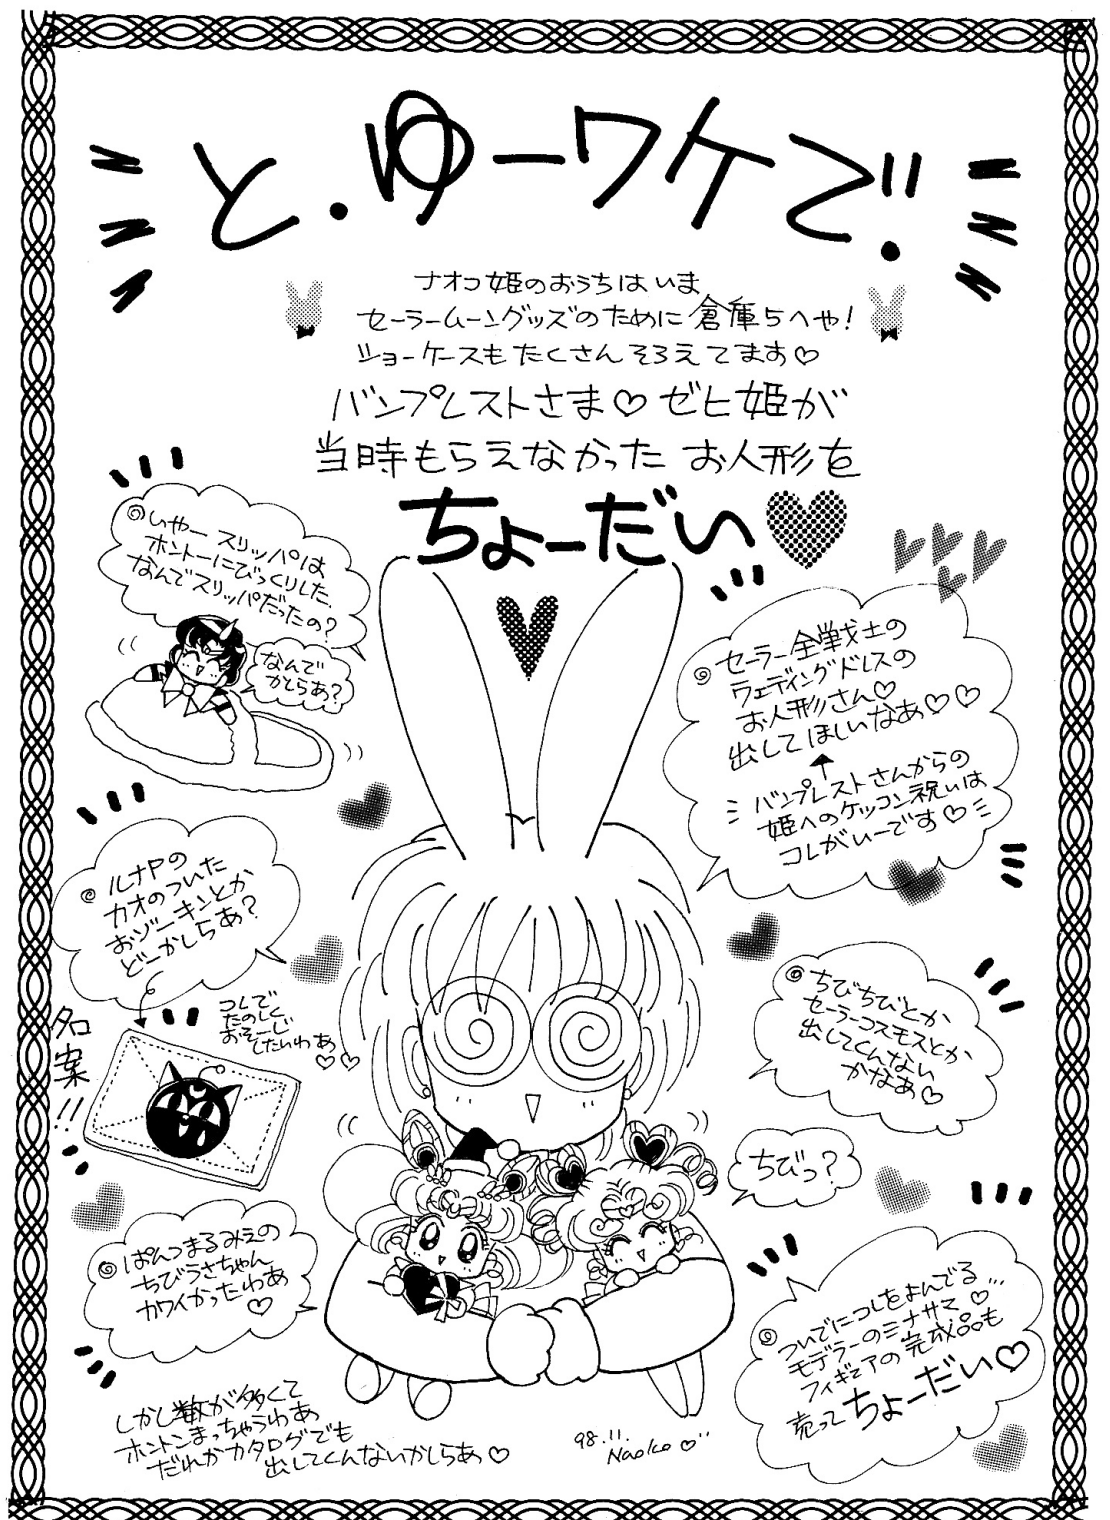 と.ゆーワケで!
ナオコ姫のおうちはいま
セーラームーングッズのために倉庫5へや!
ショーケースもたくさんそろえてます♡
バンプレストさま♡ゼヒ姫が
当時もらえなかったお人形を
ちょーだい♥
いやースリッパは
ホントーにびっくりした.
なんでスリッパだったの?
なんで
かしらあ?
セーラー全戦士の
ウェディングドレスの
お人形さん♡
出してほしいなあ♡♡
↑
バンプレストさんからの
姫へのケッコン祝いは
コレがいーです♡
ルナPの
カオのついた
おゾーキンとか
どーかしらあ?
名案!!
コレで
たのしく
おそーじ
したいわあ
♡♡
ちびちびとか
セーラーコスモスとか
出してくんない
かなあ♡
ちびっ?
ぱんつまるみえの
ちびうさちゃん
カワイかったわあ
♡
ついでにコレをよんでる…
モデラーのミナサマ♡
フィギュアの完成品も
売ってちょーだい♡
しかし数が多くて
ホントンまっちゃうわあ
だれかカタログでも
出してくんないかしらあ♡
98.11.
Naoko♡